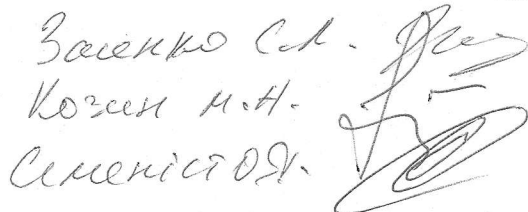 Заєнко С.А.
Козин М.Н.
Сименіст О.Я.